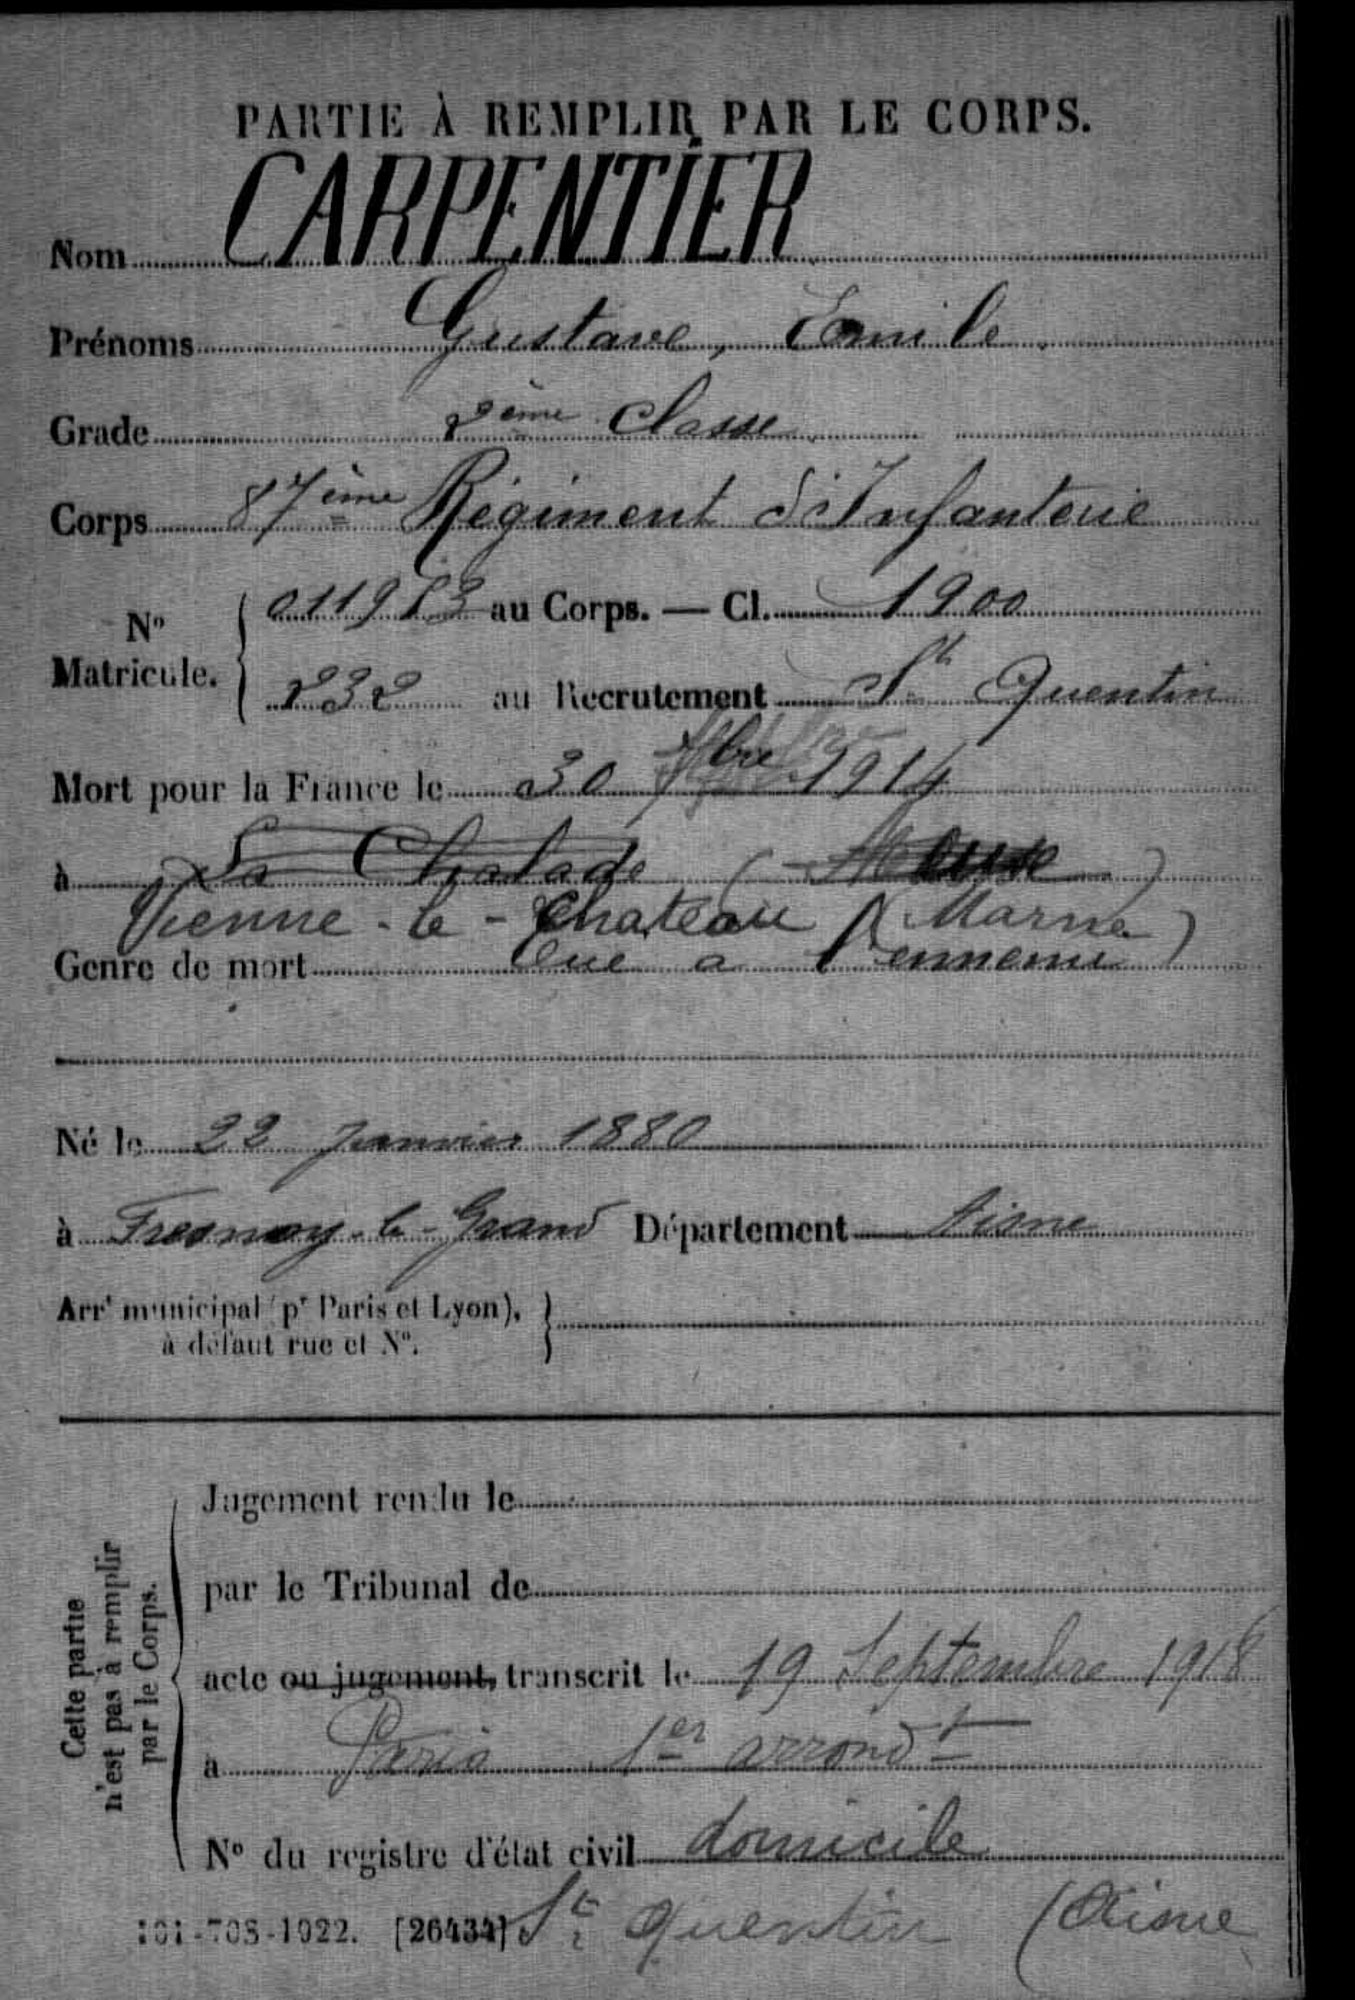 PARTIE À REMPLIR PAR LE CORPS.
Nom CARPENTIER
Prénoms Gustave, Emile
Grade 2ème Classe
Corps 87ème Régiment d'Infanterie
No Matricule. 011953 au Corps. — Cl. 1900
232 au Recrutement St Quentin
Mort pour la France le 30 7bre 1914
à La Chalade (Meuse)
Vienne-le-Chateau (Marne)
Genre de mort Tué à l'ennemi
Né le 22 Janvier 1880
à Fresnoy-le-Grand Département Aisne
Arrt municipal (pr Paris et Lyon),
à défaut rue et No.
Cette partie
n'est pas à remplir
par le Corps.
Jugement rendu le
par le Tribunal de
acte ou jugement, transcrit le 19 Septembre 1918
à Paris 1er arrondt
No du registre d'état civil domicile
101-708-1922. [26434] St Quentin (Aisne